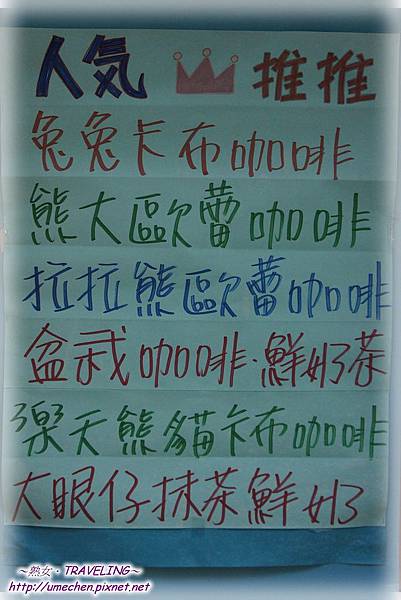 人気 推推
兔兔卡布咖啡
熊大歐蕾咖啡
拉拉熊歐蕾咖啡
盆栽咖啡·鮮奶茶
樂天熊貓卡布咖啡
大眼仔抹茶鮮奶
~熟女·TRAVELING~
http://umechen.pixnet.net